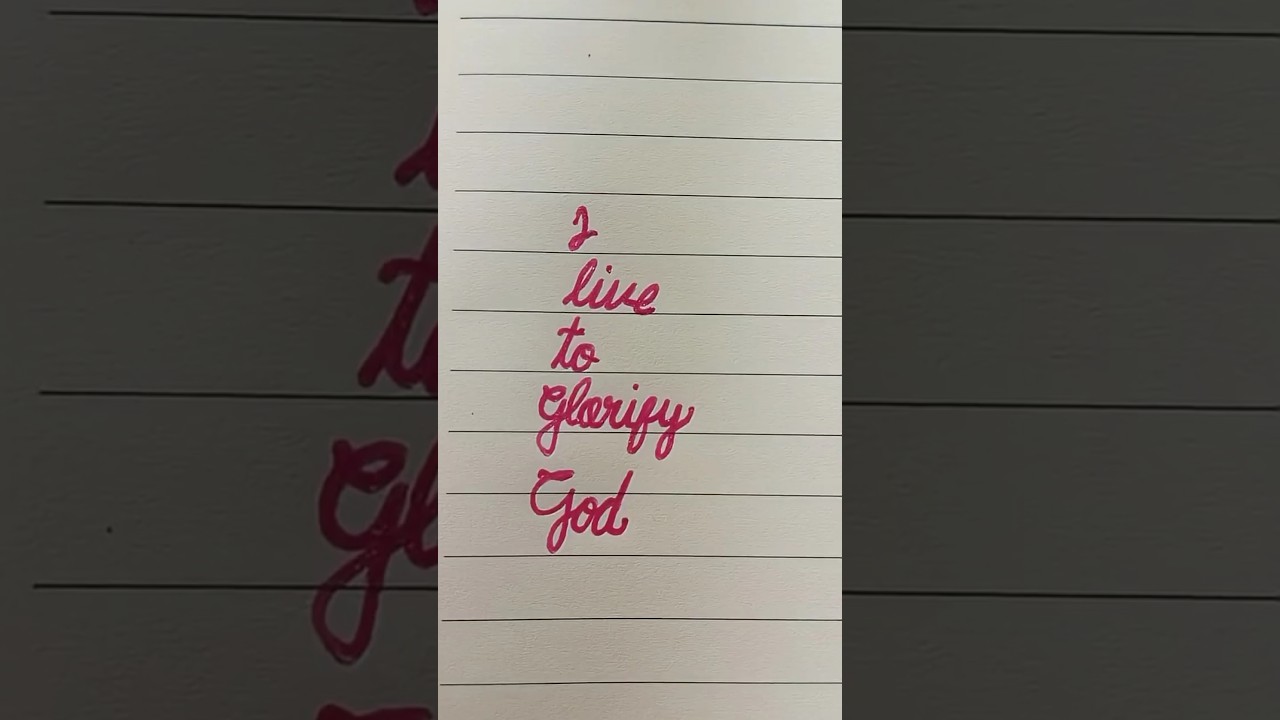 I
live
to
Glorify
God